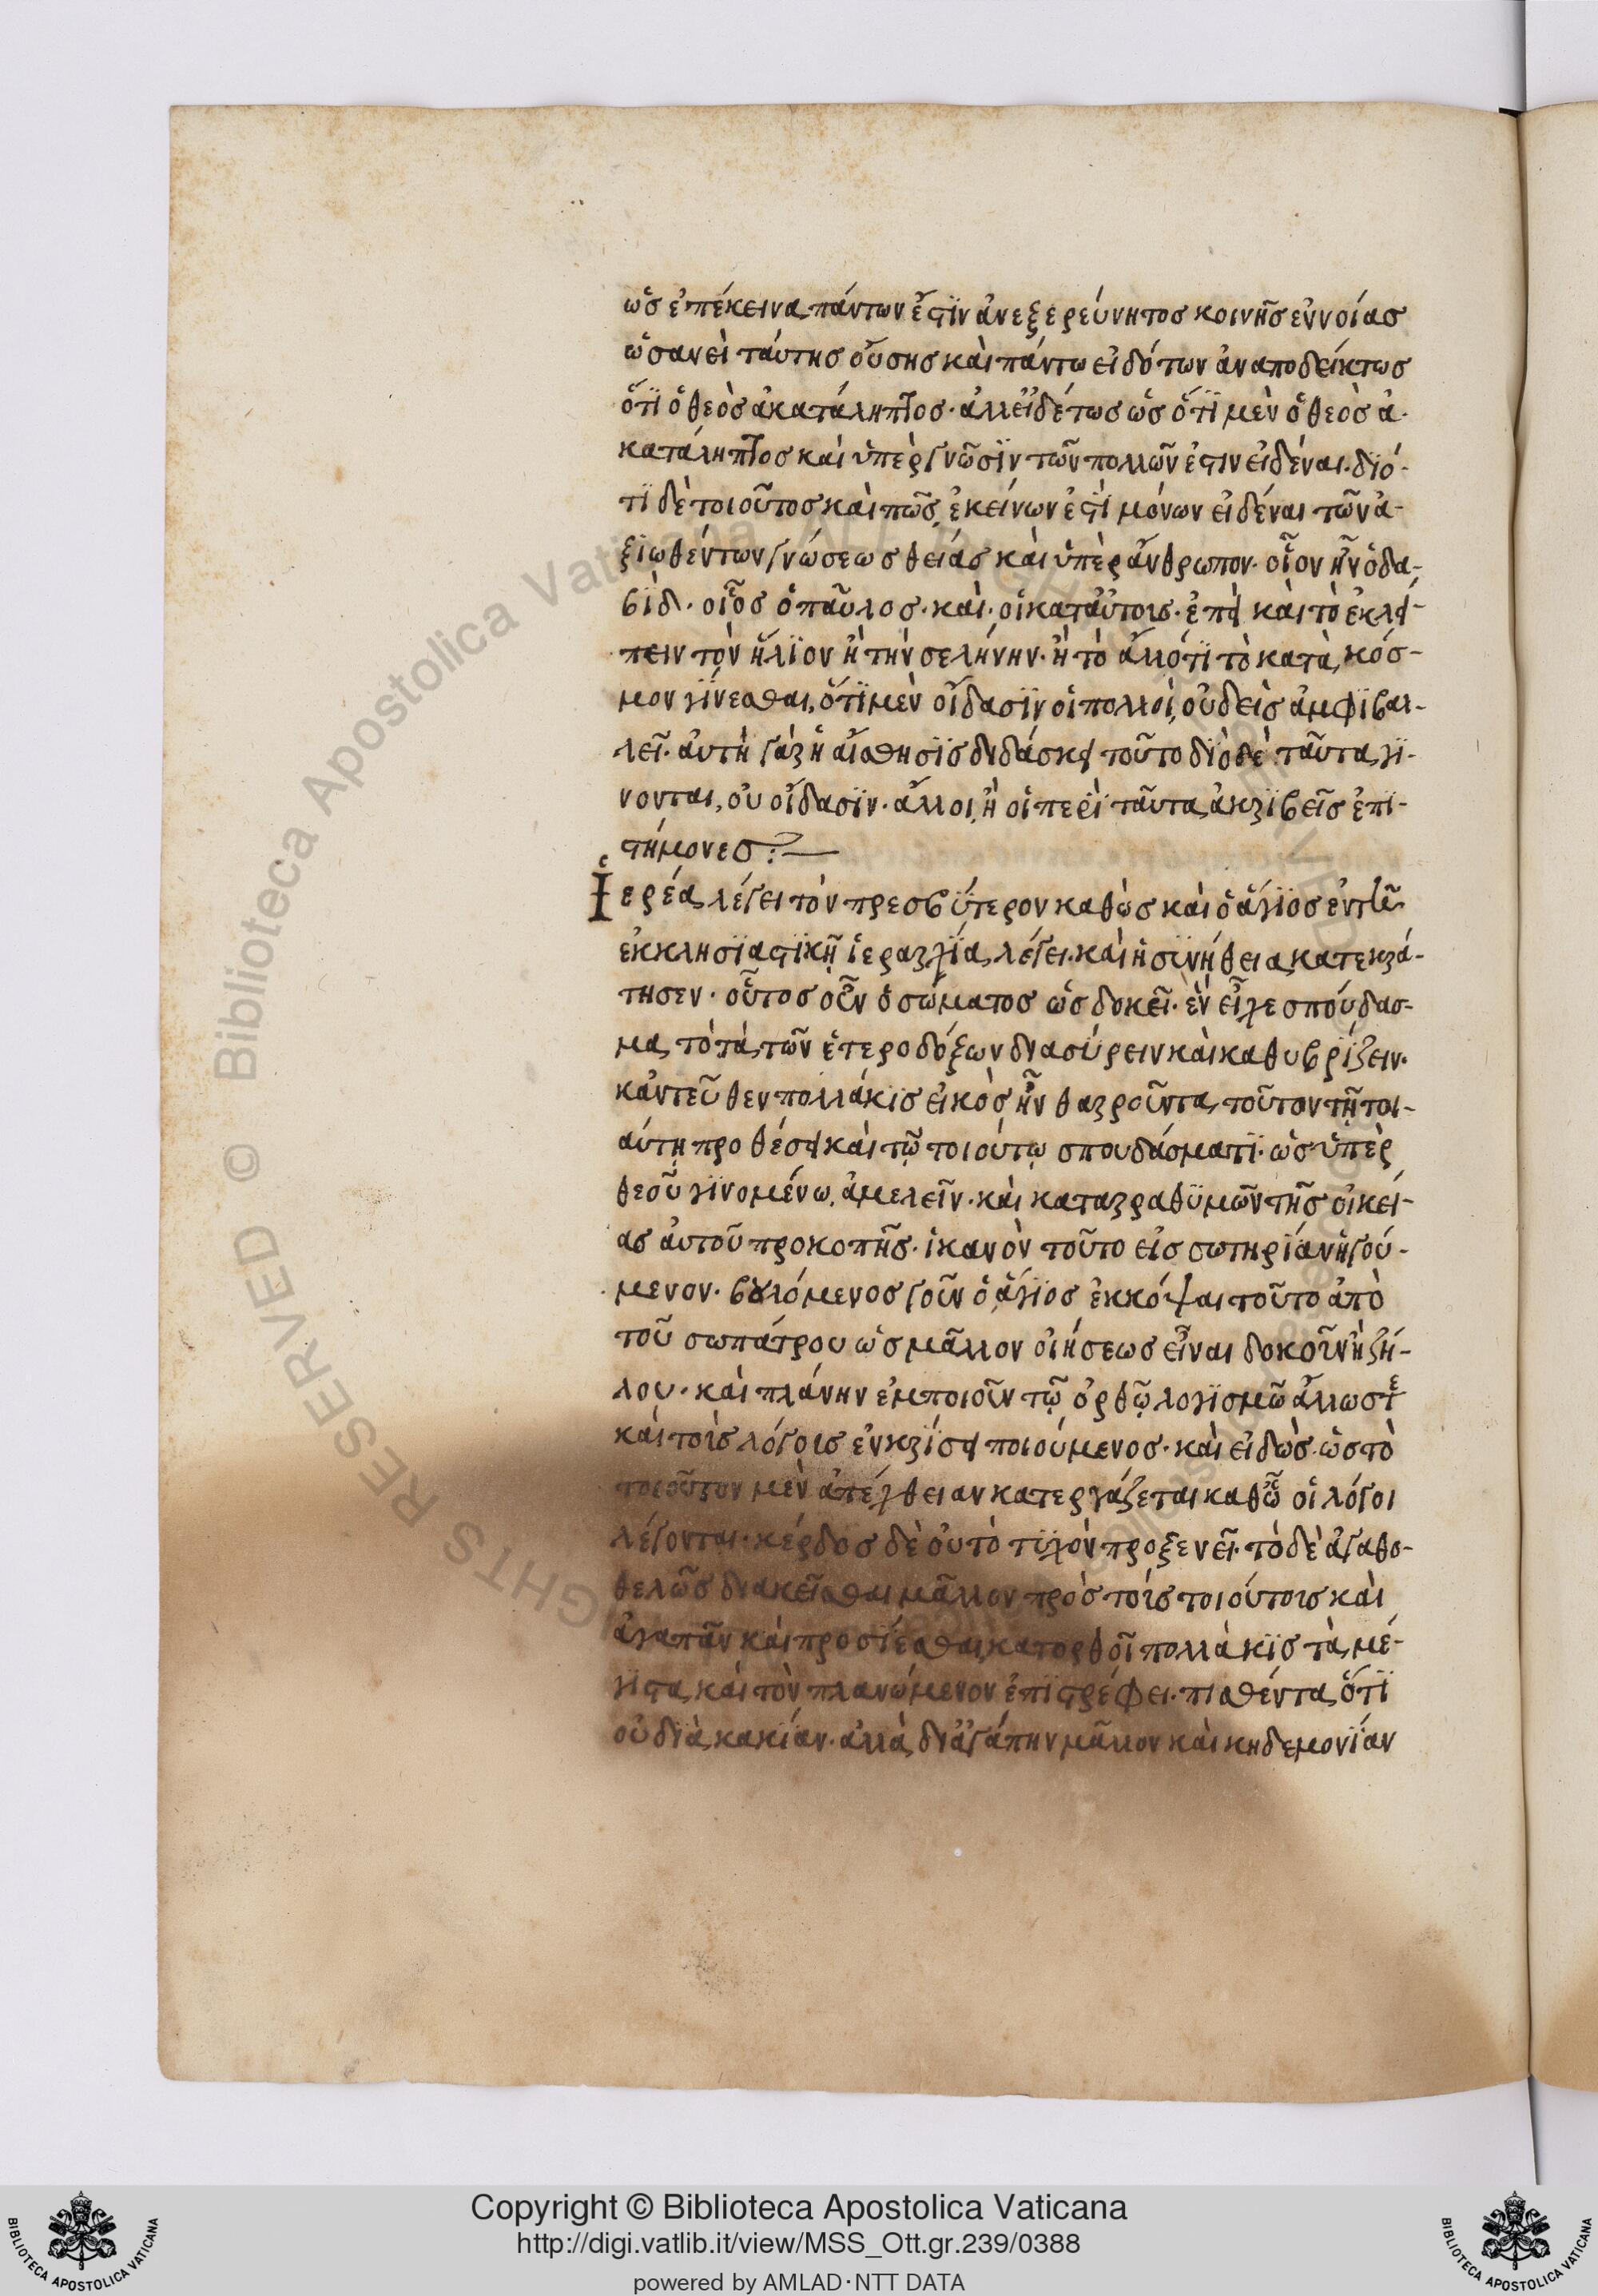 ὡς ἐπέκεινα πάντων ἐστῒν ἀνεξερεύνητος κοινῆς ἐννοίας
ὡσανεὶ ταύτης οὔσης καὶ πάντω εἰδότων ἀναποδείκτως
ὅτϊ ὁ θεὸς ἀκατάληπτος· ἀλλεἰδέτως ὡς ὅτϊ μὲν ὁ θεὸς ἀ-
κατάληπτος καὶ ὑπὲρ γνῶσϊν τῶν πολλῶν ἐστιν εἰδέναι· δϊό-
τϊ δὲ τοιοῦτος καὶ πῶς, ἐκείνων ἐστὶ μόνων εἰδέναι τῶν ἀ-
ξιωθέντων γνώσεως θείας καὶ ὑπὲρ ἄνθρωπον· οἷον ἦν ὁ δα-
βίδ· οἷος ὁ παῦλος· καὶ· οἱ κατ αὐτοις· ἐπεὶ καὶ τὸ ἐκλεί-
πειν τὸν ἥλϊον ἢ τὴν σελήνην· ἢ τὸ ἄλλότϊ τὸ κατὰ κόσ-
μον γΐνεσθαι, ὅτϊ μὲν οἴδασϊν οἱ πολλοὶ, οὐδεὶς ἀμφϊβαλ-
λεῖ· ἀυτὴ γὰρ ἡ αἴσθησϊς διδάσκει τοῦτο δϊὸ δὲ ταῦτα γΐ-
νονται, οὐ οἴδασϊν· ἄλλοι, ἢ οἱ περὶ ταῦτα ἀκρϊβεῖς ἐπϊ-
στήμονες:—
Ἱερέα λέγει τὸν πρεσβϋτερον καθὼς καὶ ὁ ἅγϊος ἐν τῆ
ἐκκλησϊαστϊκῇ ἱεραρχΐα λέγει· καὶ ἡ συνήθεια κατεκρά-
τησεν· οὗτος οὖν ὁ σώματος ὡς δοκεῖ· ἓν εἶχε σπούδασ-
μα, τὸ τὰ τῶν ἑτεροδόξων διασύρειν καὶ καθυβρΐζειν·
κἀντεῦθεν πολλάκϊς εἰκὸς ἦν θαρροῦντα, τοῦτον τῇ τοι-
αύτῃ προθέσει καὶ τῷ τοιούτῳ σπουδάσματϊ· ὡς ὑπὲρ
θεοῦ γϊνομένω, ἀμελεῖν· καὶ καταρραθϋμῶν τῆς οἰκεί-
ας ἀυτοῦ προκοπῆς· ἱκανὸν τοῦτο εἰς σωτηρΐαν ἡγού-
μενον· βουλόμενος γοῦν ὁ ἅγϊος ἐκκόψαι τοῦτο ἀπὸ
τοῦ σωπάτρου ὡς μᾶλλον οἰήσεως εἶναι δοκοῦν ἢ ζή-
λου· καὶ πλάνην ἐμποιοῦν τῷ ὀρθῷ λογϊσμῶ ἄλλωστε
καὶ τοὶς λόγοις ἐν κρΐσει ποιούμενος· καὶ εἰδὼς ὡς τὸ
τοιοῦτον μὲν ἀπέχθειαν κατεργάζεται καθ ὧ οἱ λόγοι
λέγονται· κέρδος δὲ οὐ τὸ τϋχὸν προξενεῖ· τὸ δὲ ἀγαθο-
θελῶς διακεῖσθαι μᾶλλον πρὸς τοὶς τοιούτοις καὶ
ἀγαπᾶν καὶ προσΐεσθαι, κατορθοῖ πολλάκϊς τὰ μέ-
γϊστα, καὶ τὸν πλανώμενον ἐπϊστρέφει· πισθέντα, ὅτϊ
οὐ δϊὰ κακΐαν· ἀλλὰ δι ἀγάπην μᾶλλον καὶ κηδεμονΐαν
Copyright © Biblioteca Apostolica Vaticana
http://digi.vatlib.it/view/MSS_Ott.gr.239/0388
powered by AMLAD·NTT DATA